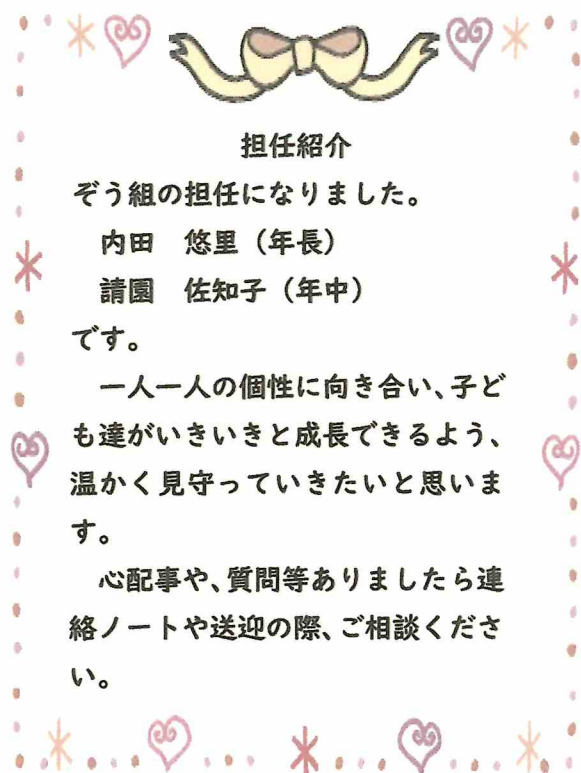 担任紹介
ぞう組の担任になりました。
内田　悠里（年長）
請園　佐知子（年中）
です。
一人一人の個性に向き合い、子ど
も達がいきいきと成長できるよう、
温かく見守っていきたいと思いま
す。
心配事や、質問等ありましたら連
絡ノートや送迎の際、ご相談くださ
い。